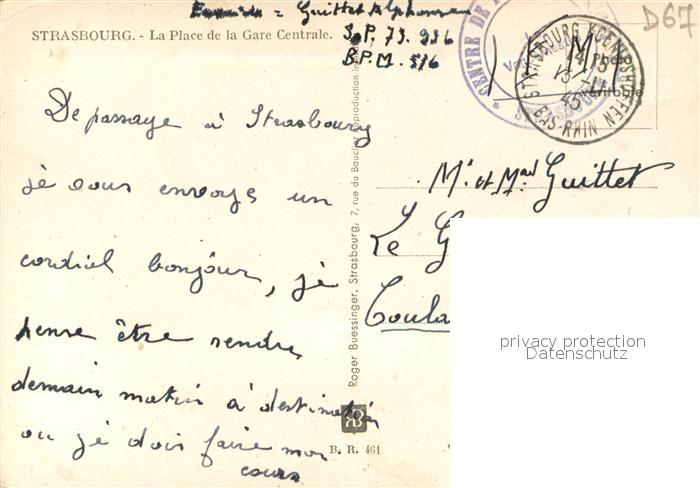 = Guittet Alphonse
S.P. 73.936
B.P.M. 516
D67
STRASBOURG. - La Place de la Gare Centrale.
CENTRE DE
F M
Photo
véritable
STRASBOURG KŒNIGSHOFFEN
BAS-RHIN
De passage à Strasbourg
je vous envoye un
cordial bonjour, je
pense être rendre
demain matin à destination
ou je dois faire mon
cours
Roger Buessinger, Strasbourg, 7, rue du Bouclier
B. R. 461
Mr et Mad Guittet
Le G
Toula
privacy protection
Datenschutz